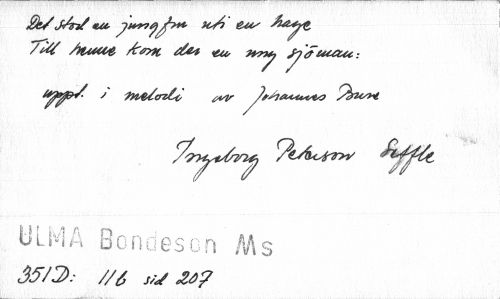 Det stod en jungfru uti en hage
Till henne kom der en ung sjöman:
uppt. i melodi av Johannes Bure
Ingeborg Peterson Seffle
ULMA Bondeson Ms
351D: 116 sid 207